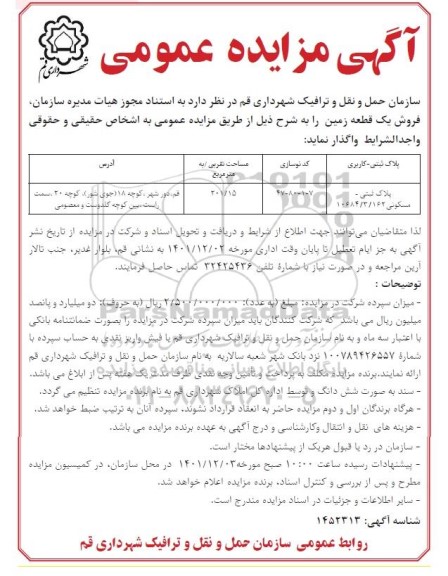 آگهی مزایده عمومی
شهرداری قم
سازمان حمل و نقل و ترافیک شهرداری قم در نظر دارد به استناد مجوز هیات مدیره سازمان،
فروش یک قطعه زمین را به شرح ذیل از طریق مزایده عمومی به اشخاص حقیقی و حقوقی
واجدالشرایط واگذار نماید:
پلاک ثبتی-کاربری
کد نوسازی
مساحت تقریبی/به مترمربع
آدرس
پلاک ثبتی -
مسکونی ۱۰۶۸۴/۳/۱۶۲
۴۷-۸۰-۱۰۷
۳۰۱/۱۵
قم،دور شهر ،کوچه ۱۸(جوی شور)، کوچه ۲۰ ،سمت
راست،بین کوچه گلدوست و معصومی
لذا متقاضیان می‌توانند جهت اطلاع از شرایط و دریافت و تحویل اسناد و شرکت در مزایده از تاریخ نشر
آگهی به جز ایام تعطیل تا پایان وقت اداری مورخه ۱۴۰۱/۱۲/۰۲ به نشانی قم، بلوار غدیر، جنب تالار
آرین مراجعه و در صورت نیاز با شمارهٔ تلفن ۳۲۴۲۵۴۳۶ تماس حاصل فرمایند.
توضیحات :
- میزان سپرده شرکت در مزایده: مبلغ (به عدد): ۲/۵۰۰/۰۰۰/۰۰۰ ریال (به حروف): دو میلیارد و پانصد
میلیون ریال می باشد که شرکت کنندگان باید میزان سپرده شرکت در مزایده را بصورت ضمانتنامه بانکی
با اعتبار سه ماه و به نام سازمان حمل و نقل و ترافیک شهرداری قم یا فیش واریز نقدی به حساب سپرده با
شمارهٔ ۱۰۰۷۸۹۴۲۶۵۵۷ نزد بانک شهر شعبه سالاریه به نام سازمان حمل و نقل و ترافیک شهرداری قم
ارائه نمایند.برنده مزایده مکلف به پرداخت و تأمین وجه نقدی ظرف مدت یک هفته پس از ابلاغ می باشد.
- سند به صورت شش دانگ و توسط اداره کل املاک شهرداری قم به نام برنده مزایده تنظیم می گردد.
- هرگاه برندگان اول و دوم مزایده حاضر به انعقاد قرارداد نشوند، سپرده آنان به ترتیب ضبط خواهد شد.
- هزینه های نقل و انتقال وکارشناسی و درج آگهی به عهده برنده مزایده می باشد.
- سازمان در رد یا قبول هریک از پیشنهادها مختار است.
- پیشنهادات رسیده ساعت ۱۰:۰۰ صبح مورخه ۱۴۰۱/۱۲/۰۳ در محل سازمان، در کمیسیون مزایده
مطرح و پس از بررسی و کنترل اسناد، برنده مزایده اعلام خواهد شد.
- سایر اطلاعات و جزئیات در اسناد مزایده مندرج است.
شناسه آگهی: ۱۴۵۲۳۱۳
روابط عمومی سازمان حمل و نقل و ترافیک شهرداری قم